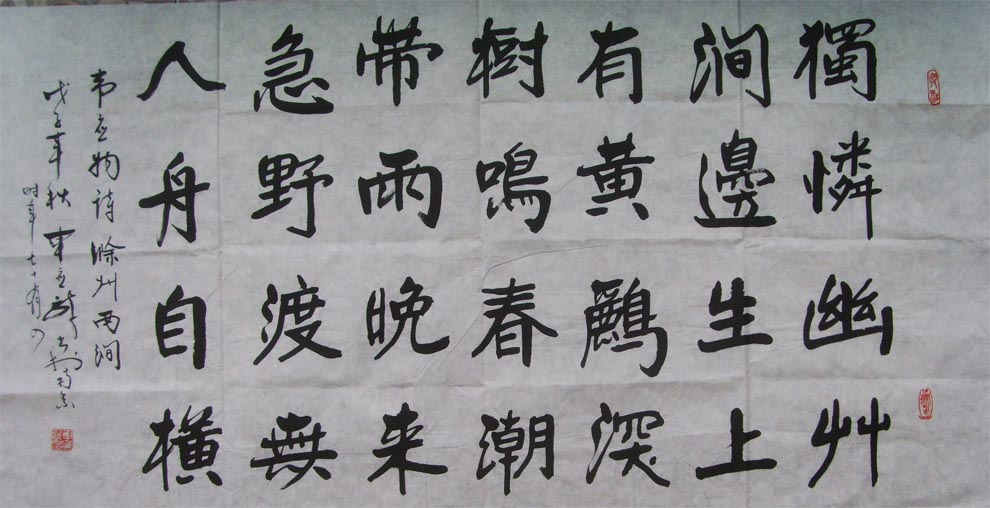 獨憐幽艸
澗邊生上
有黄鸝深
樹鳴春潮
帶雨晚来
急野渡無
人舟自橫
韦应物诗滁州西涧
戊子年秋
时年七十有